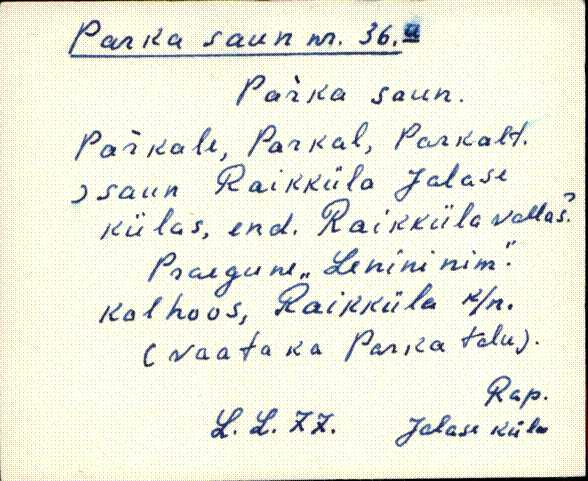 Parka saun nr. 36.a
Par̀ka saun.
Par̀kale, Parkal, Parkalt.
) saun Raikküla Jalase
külas, end. Raikküla vallas?
Praegune „Lenini nim."
kolhoos, Raikküla k/n.
(vaata ka Parka talu).
Rap.
L. L. ZZ. Jalase küla